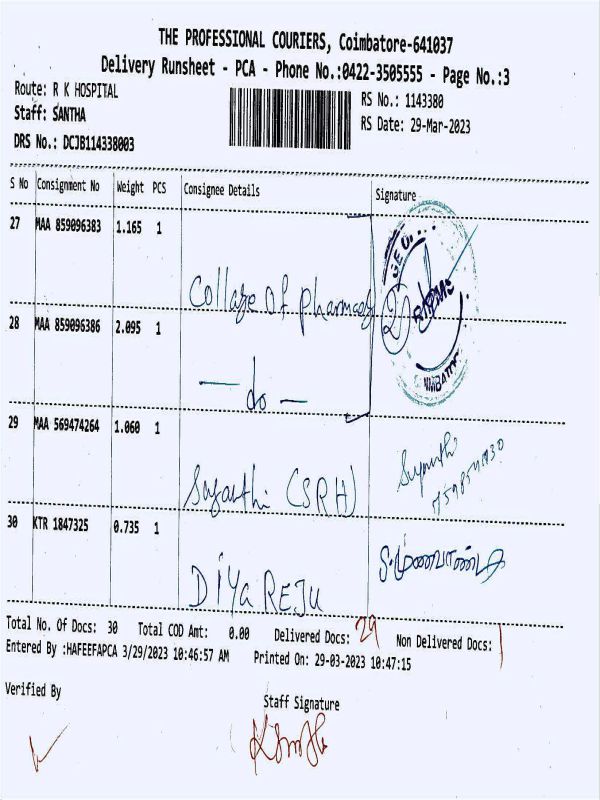 THE PROFESSIONAL COURIERS, Coimbatore-641037
Delivery Runsheet - PCA - Phone No.:0422-3505555 - Page No.:3
Route: R K HOSPITAL
RS No.: 1143380
Staff: SANTHA
RS Date: 29-Mar-2023
DRS No.: DCJB114338003
S No Consignment No Weight PCS Consignee Details Signature
27 MAA 859096383 1.165 1
College of pharmacy 2
28 MAA 859096386 2.095 1
— do —
29 MAA 569474264 1.060 1
Sujanthi (SRH)
30 KTR 1847325 0.735 1
DIYA REJU
Total No. Of Docs: 30 Total COD Amt: 0.00 Delivered Docs: 29 Non Delivered Docs: 1
Entered By :HAFEEFAPCA 3/29/2023 10:46:57 AM Printed On: 29-03-2023 10:47:15
Verified By
Staff Signature